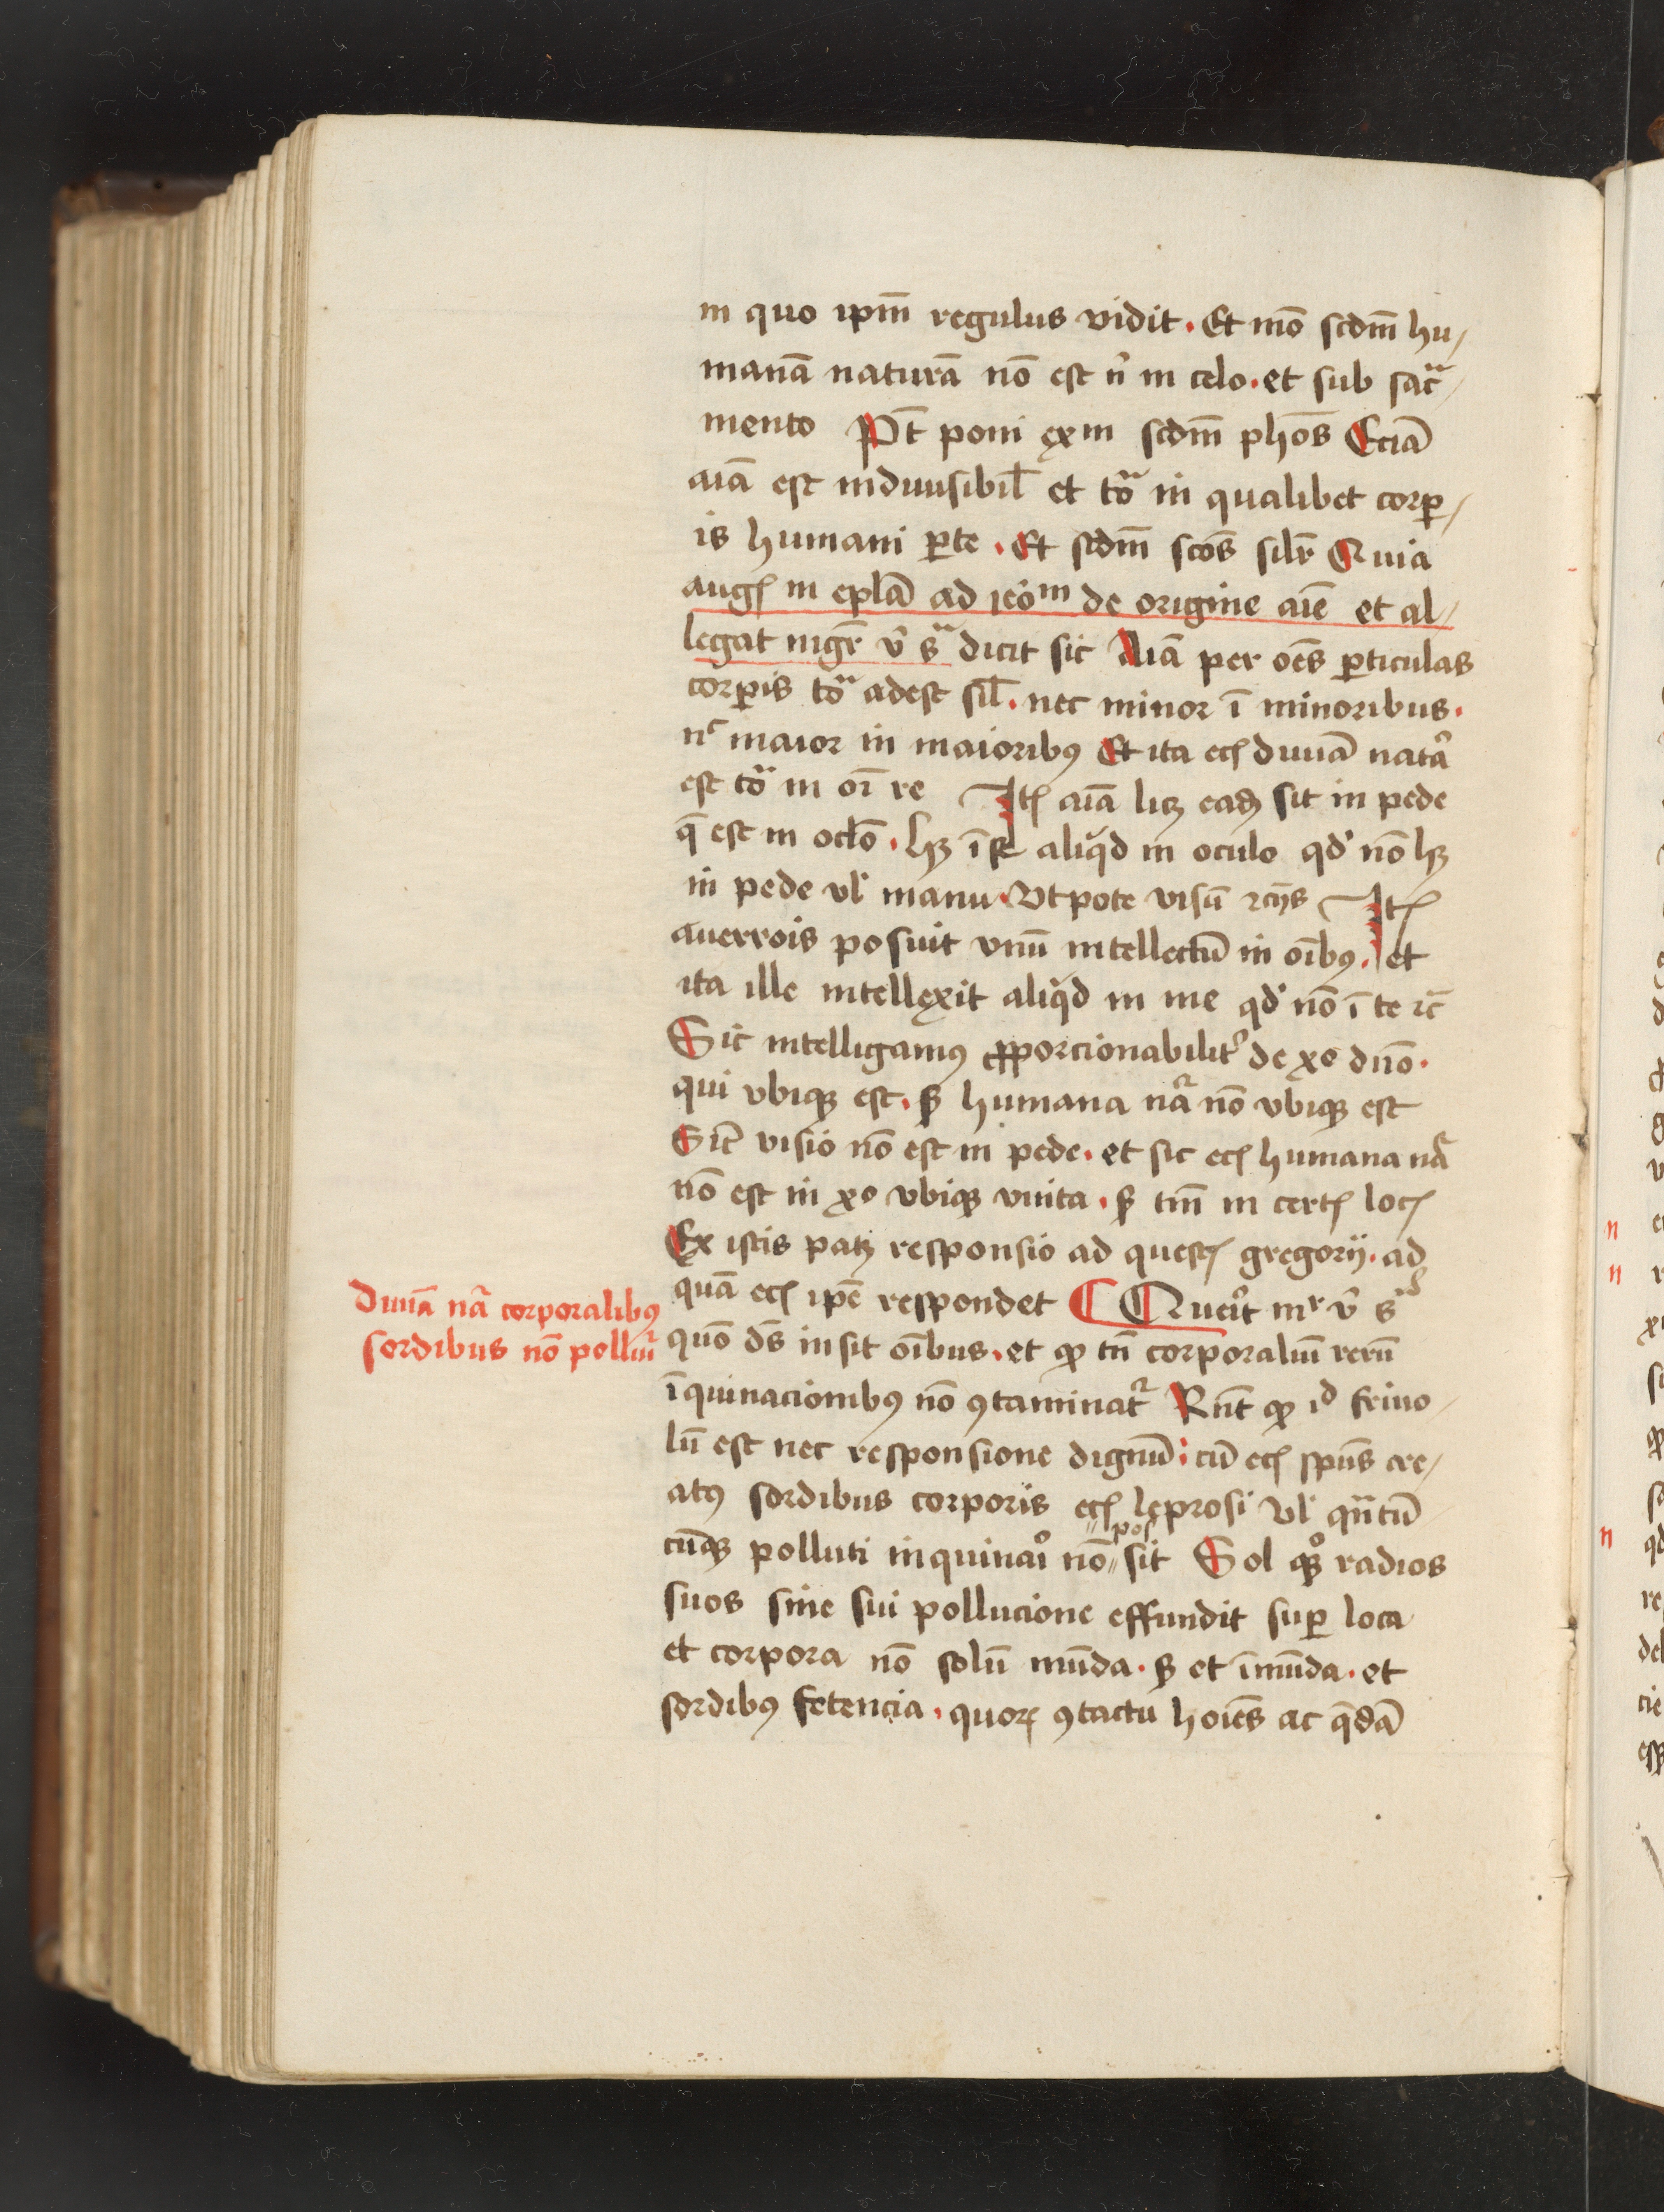 in quo ipm̄ regulus vidit. Et mō scdm̄ hu/
manā naturā nō est n̓ in celo. et sub sac̄ᵃ/
mento Pt̄ poni exm scdm̄ phōs Eciā
aīa est indiuisibil̄ et toᵃ in qualibet corꝑ/
is humani ꝑte. Et scdm̄ scōs silr̄ Quia
augꝭ in epl̄a ad ieōᵐ de origine aīe et al/
legat mgr̄ v̓ sᵃ dicit sic Aīa per oēs ꝑticulas
corꝑis toᵃ adest sil̄. nec minor ī minoribus.
nᶜ maior in maioribꝰ Et ita ecꝭ diuīa natᵃ
est toᵃ in oī re Itꝭ aīa licꝫ eadꝫ sit in pede
q̄ est in oclō. hꝫ ī se aliqd in oculo qd̓ nō hꝫ
in pede vl̓ manu. Vtpote visū ⁊cꝭ Itꝭ
auerrois posuit vnū intellectū in oībꝰ. et
ita ille intellexit aliqd in me qd̓ nō ī te ⁊c̄
Sic intelligamꝰ ꝓporcionabilit̓ de xo dnō.
qui vbiqꝫ est. sꝫ humana nᵃ nō vbiqꝫ est
Sic̄ visio nō est in pede. et sic ecꝭ humana nᵃ
nō est in xo vbiqꝫ vnita. sꝫ tm̄ in certꝭ locꝭ
Ex istis patꝫ responsio ad questꝭ gregorij. ad
quā ecꝭ ipē respondet Quer̓it mʳ v̓ sᵃ
quō ds̄ insit oībus. et ꝙ tn̄ corporaliū rerū
īquinacionibꝰ nō ꝯtaminatᷣ Rn̄t ꝙ iᵈ friuo/
lū est nec responsione dignū. cū ecꝭ spūs cre/
atꝰ sordibus corporis ecꝭ leprosi vl̓ qn̄tū/
cūqꝫ polluti inquinar̓i nō "pos" sit Sol qꝫ̊ radios
suos sine sui pollucione effundit suꝑ loca
et corpora nō solū mūda. sꝫ et īmūda. et
sordibꝰ fetencia. quoꝝ ꝯtactu hoīes ac q̄dā
Diuīa nᵃ corporalibꝰ
sordibus nō polluiᷣ